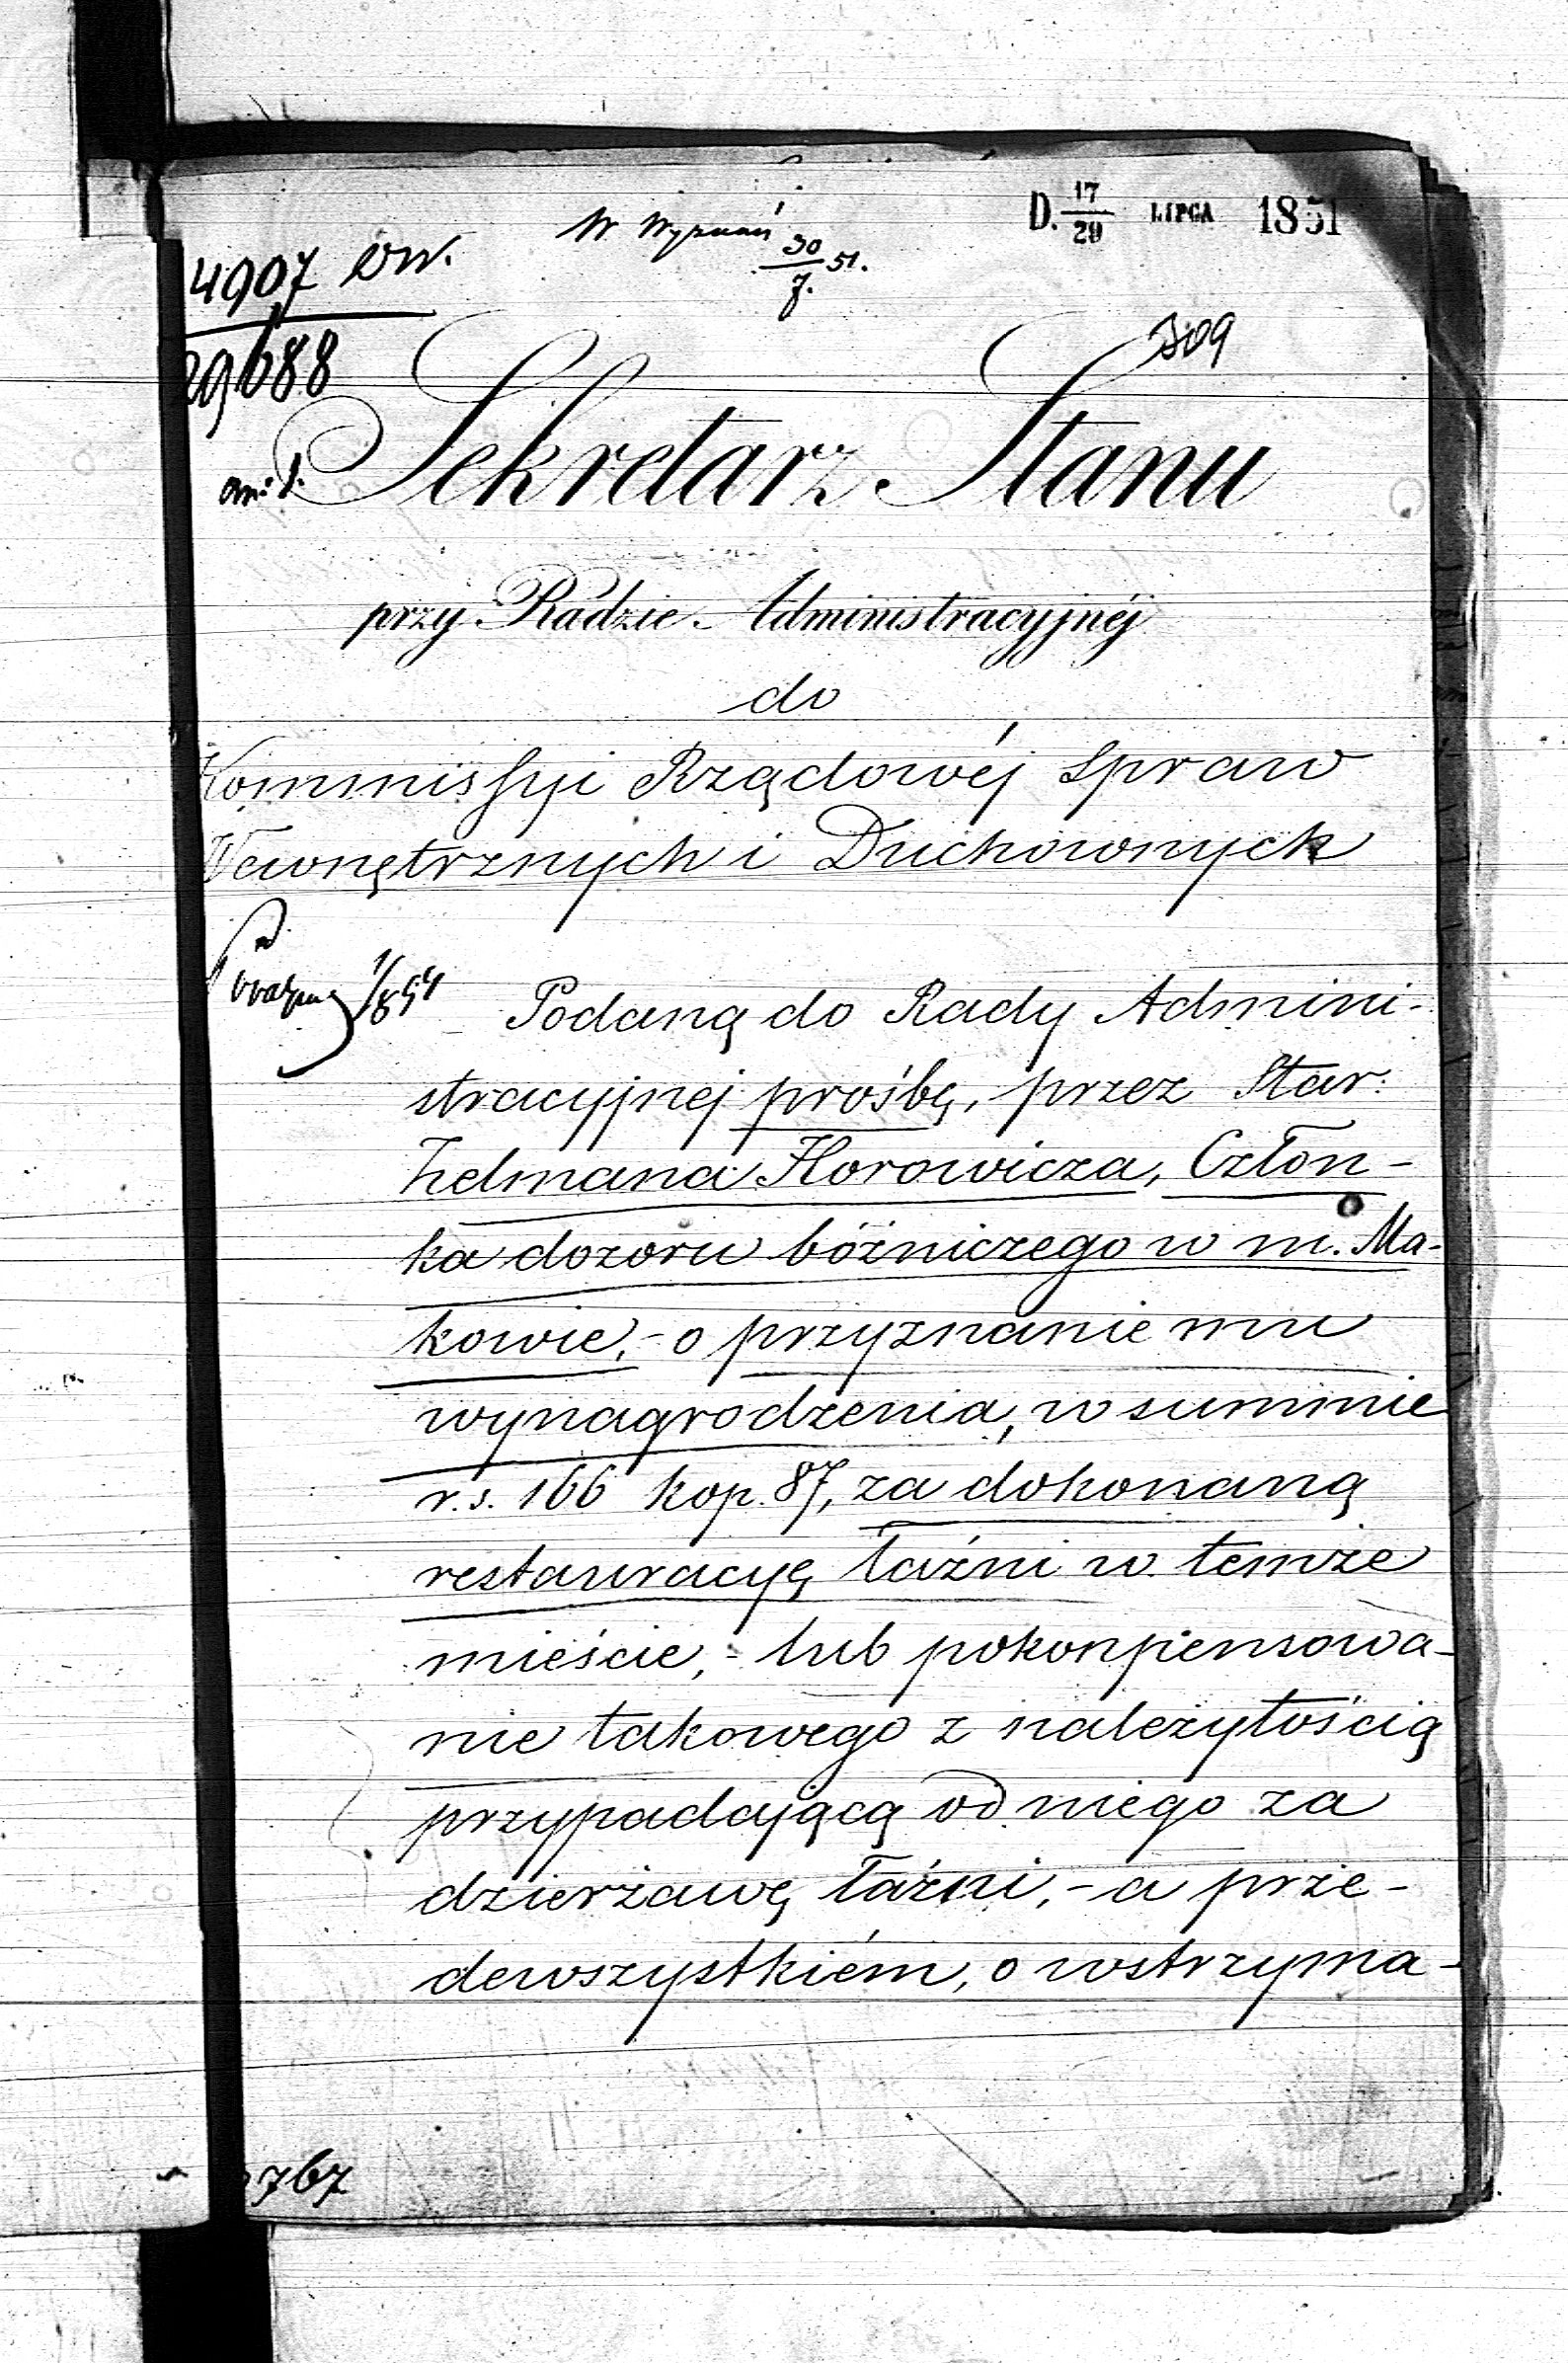 D. 17/29 LIPCA 1851
W Wyznań 30/7. 51.
4907 WW.
29688
309
an: 1.
Sekretarz Stanu
przy Radzie Administracyjnéj
do
Kommissyi Rządowéj Spraw
Wewnętrznych i Duchownych
Podaną do Rady Admini-
stracyjnej prośbę, przez Star:
Zelmana Horowicza, Człon-
ka dozoru bóżniczego w m. Ma-
kowie, - o przyznanie mu
wynagrodzenia, w summie
r.s. 166 kop. 87, za dokonaną
restauracyę łaźni w temże
mieście, - lub pokonpensowa-
nie takowego z należytością
przypadającą od niego za
dzierżawę łaźni, - a prze-
dewszystkiém, o wstrzyma-
767